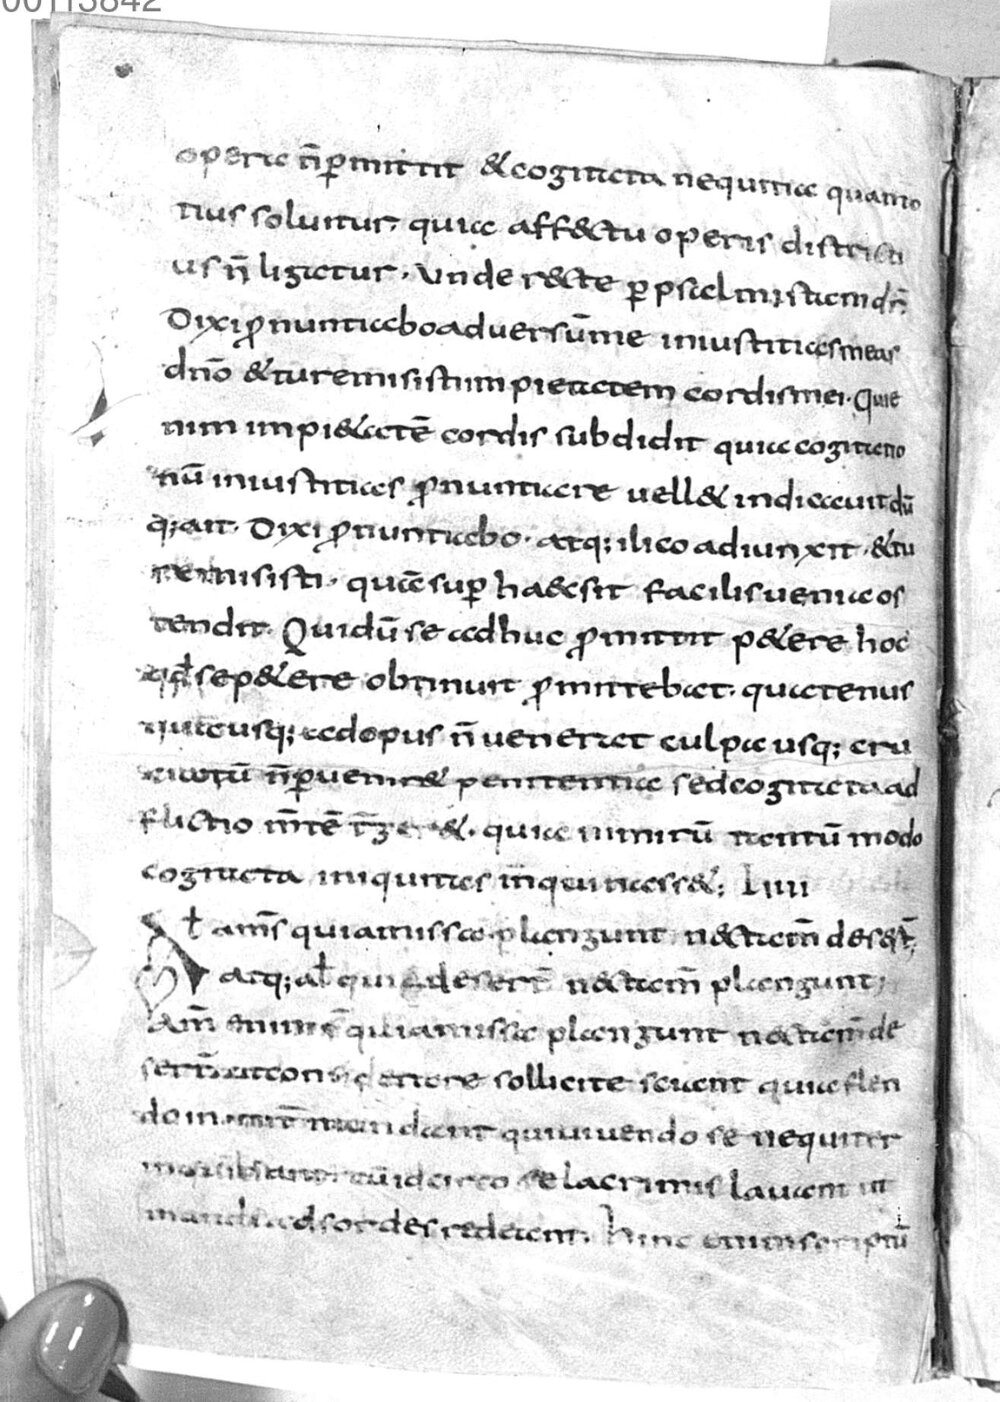 00113842
opera n̄ ꝑmittit & cogitata nequitia quanto
tius soluitur. quia aff&ctu operis districti
us n̄ ligatur. Unde r&cte ꝑ psalmistam dr̄.
Dixi ꝓnuntiabo aduersū me iniustitias meas
dn̄o & tu remisisti impietatem cordis mei. Qui e
nim impi&atē cordis subdidit quia cogitatio
nū iniustitias ꝓnuntiare uell& indicauit dū
q; ait. Dixi ꝓnuntiabo. atq; ilico adiunxit. & tu
remisisti. quā sup̄ haec sit facilis uenia os
tendit. Qui dū se adhuc ꝓmittit p&ere hoc
qđ se p&ere obtinuit ꝓmittebat. quatenus
quia usq; ad opus n̄ uenerat culpa usq; cru
ciatū n̄ ꝑuenir& penitentia sed cogitata ad
flictio m̄tē t̄ger&. quia nimirū tantū modo
cogitata iniquitas inquinass&; Liiii
at amn̄s qui amissa plangunt n& tam̄ deser̄t;
atq; al qui ea deser̄t n& tam̄ plangunt;
Am̄ enim s̄ qui amissa plangunt n& tam̄ de
ser̄t ut considerare sollicite sciant quia flen
do inanit̄ mundant qui uiuendo se nequiter
cū idcirco se lacrimis lauant ut
mundi ad sordes redeant. hinc enim scriptū